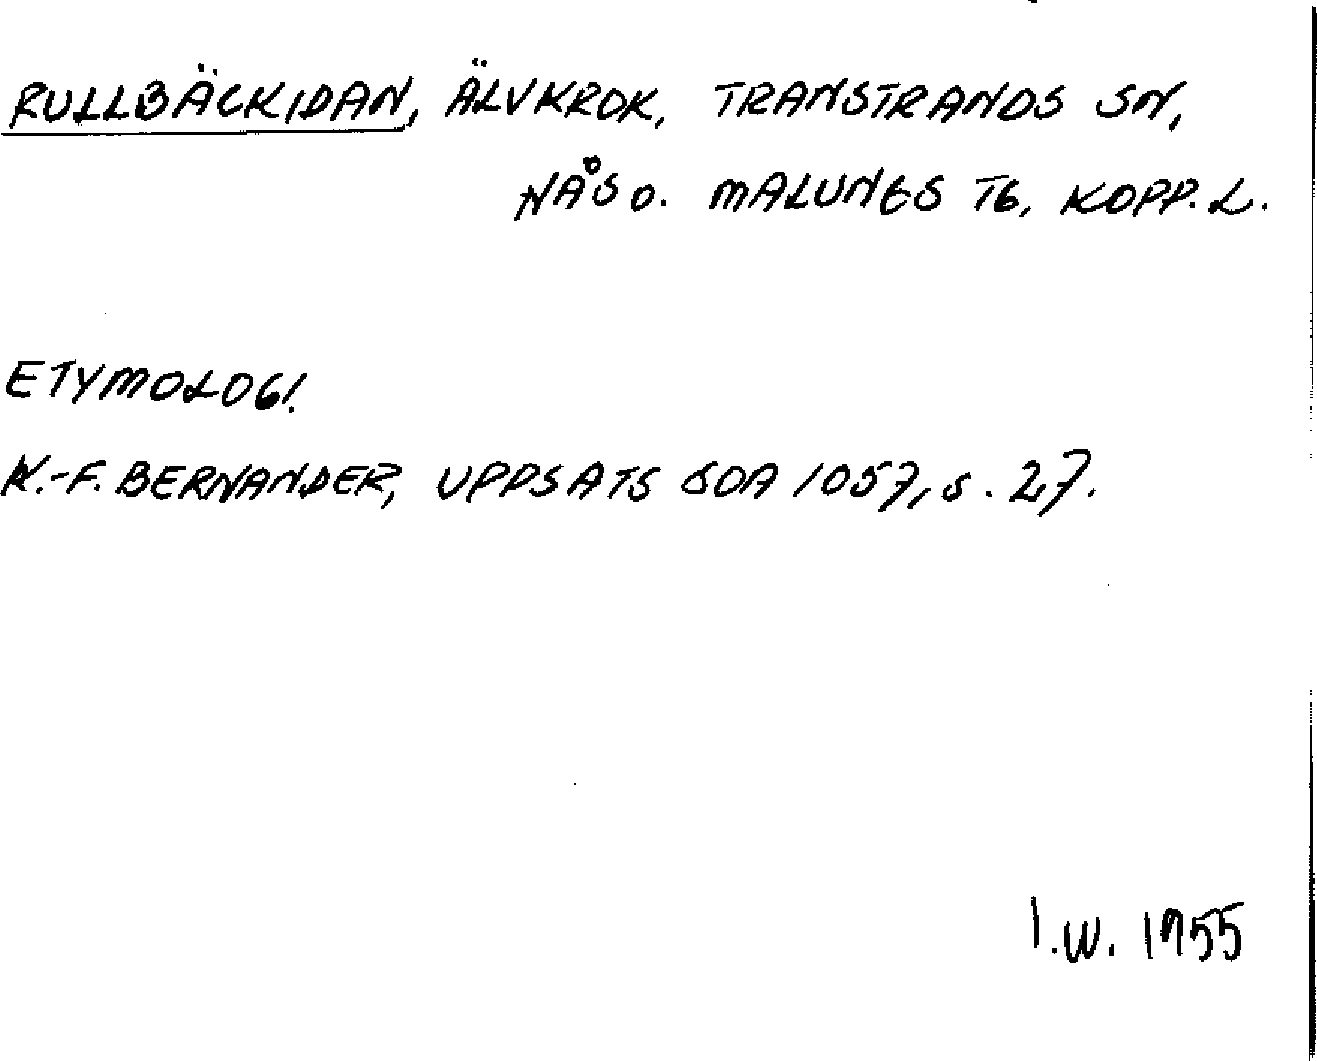 RULLBÄCKIDAN, ÄLVKROK, TRANSTRANDS SN,
NÅS O. MALUNGS TG, KOPP. L.
ETYMOLOGI.
K.-F. BERNANDER, UPPSATS SOA 1057, S. 27.
I.W. 1955